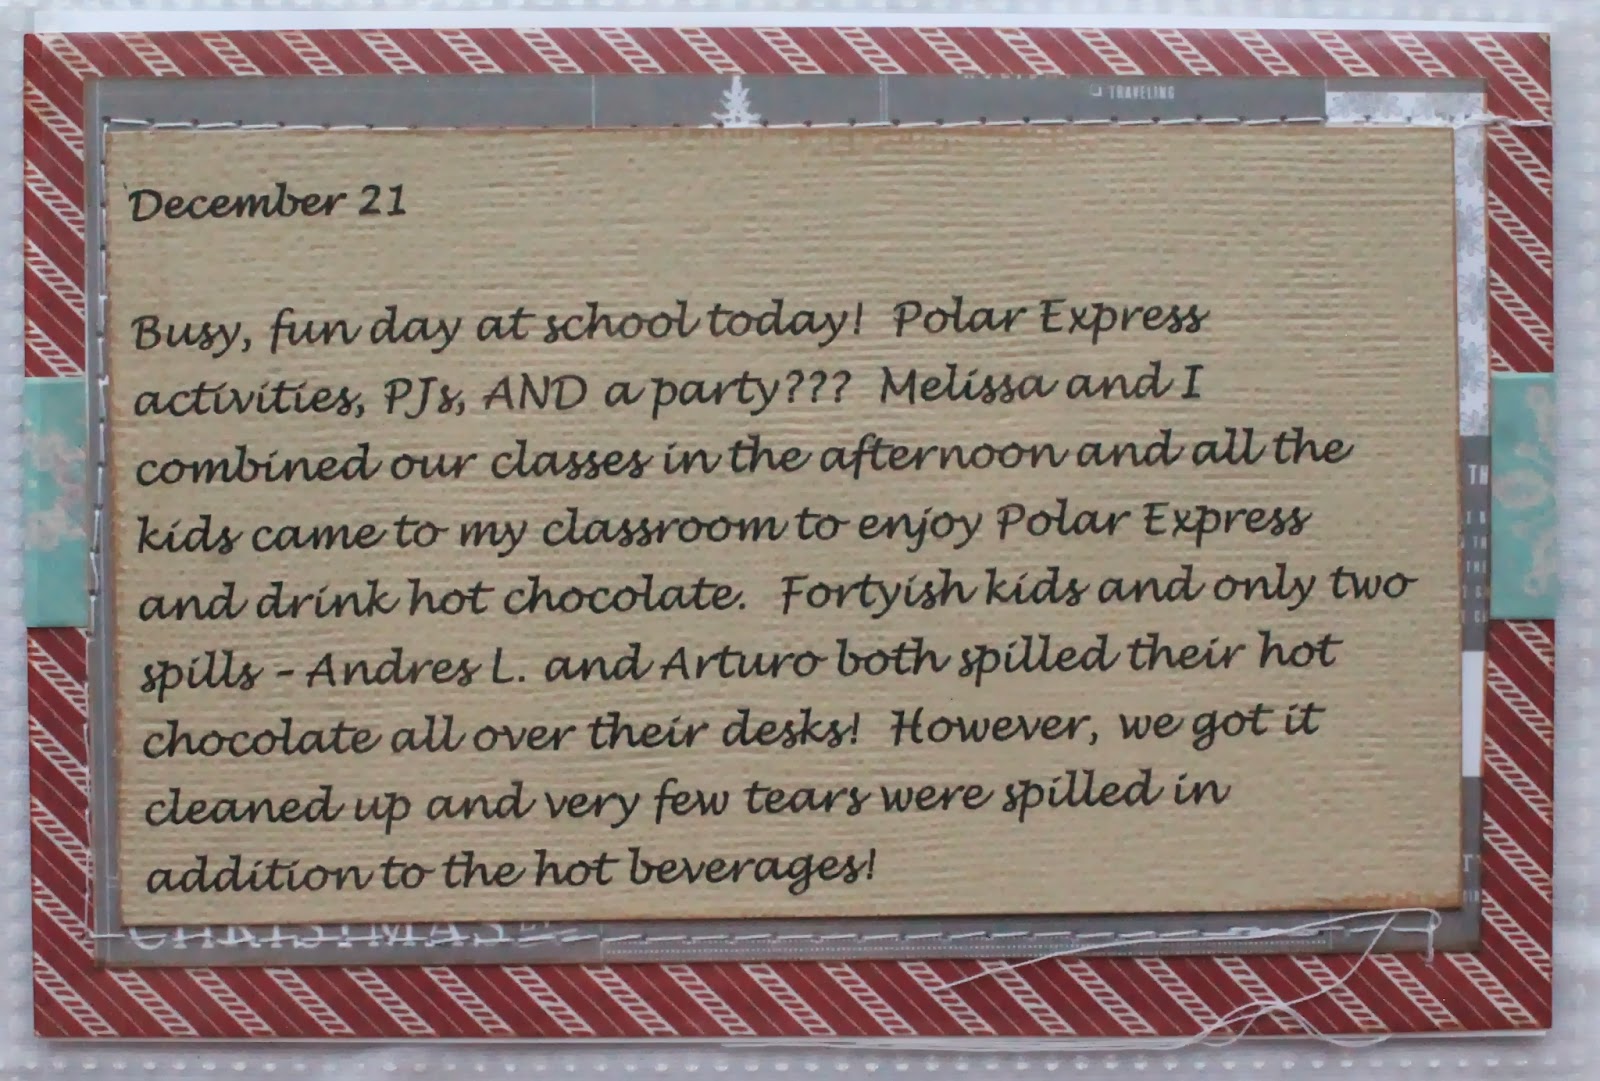 TRAVELING
December 21
Busy, fun day at school today! Polar Express
activities, PJs, AND a party??? Melissa and I
combined our classes in the afternoon and all the
kids came to my classroom to enjoy Polar Express
and drink hot chocolate. Fortyish kids and only two
spills - Andres L. and Arturo both spilled their hot
chocolate all over their desks! However, we got it
cleaned up and very few tears were spilled in
addition to the hot beverages!
CHRISTMAS